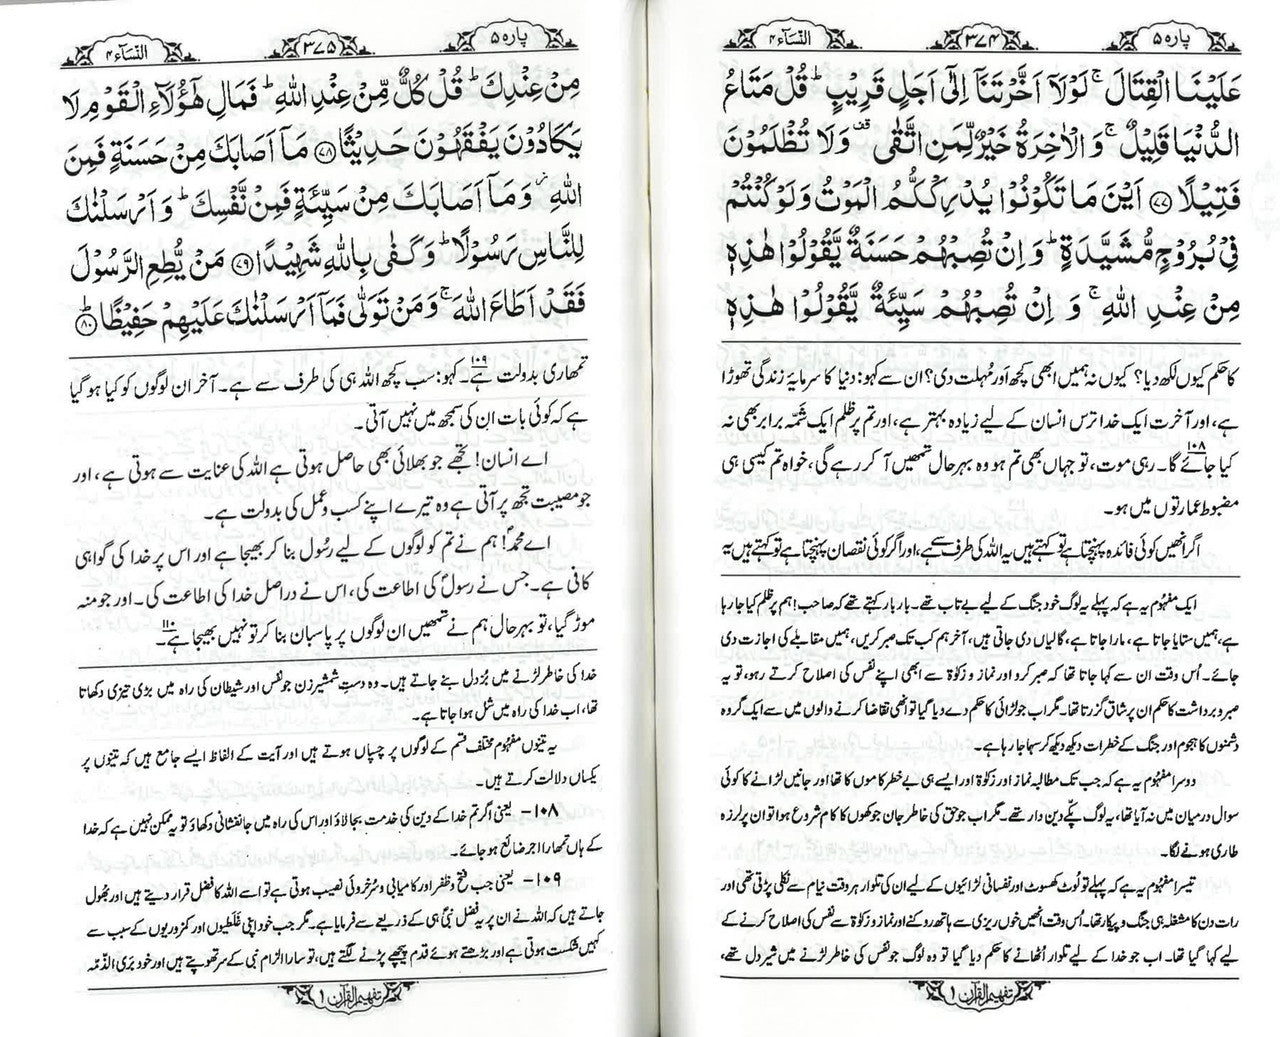 پارہ ۵
۳۷۴
النّسآء ۴
عَلَيْنَا الْقِتَالَ ۚ لَوْلَآ اَخَّرْتَنَآ اِلٰٓى اَجَلٍ قَرِيْبٍ ؕ قُلْ مَتَاعُ
الدُّنْيَا قَلِيْلٌ ۚ وَالْاٰخِرَةُ خَيْرٌ لِّمَنِ اتَّقٰى ۫ وَلَا تُظْلَمُوْنَ
فَتِيْلًا ﴿۷۷﴾ اَيْنَ مَا تَكُوْنُوْا يُدْرِكْكُّمُ الْمَوْتُ وَلَوْ كُنْتُمْ
فِيْ بُرُوْجٍ مُّشَيَّدَةٍ ؕ وَاِنْ تُصِبْهُمْ حَسَنَةٌ يَّقُوْلُوْا هٰذِهٖ
مِنْ عِنْدِ اللّٰهِ ۚ وَاِنْ تُصِبْهُمْ سَيِّئَةٌ يَّقُوْلُوْا هٰذِهٖ
کا حکم کیوں لکھ دیا؟ کیوں نہ ہمیں ابھی کچھ اور مُہلت دی؟ ان سے کہو: دنیا کا سرمایۂ زندگی تھوڑا
ہے، اور آخرت ایک خدا ترس انسان کے لیے زیادہ بہتر ہے، اور تم پر ظلم ایک شمّہ برابر بھی نہ
کیا جائے گا۔۱۰۸ رہی موت، تو جہاں بھی تم ہو وہ بہرحال تمھیں آ کر رہے گی، خواہ تم کیسی ہی
مضبوط عمارتوں میں ہو۔
اگر انھیں کوئی فائدہ پہنچتا ہے تو کہتے ہیں یہ اللہ کی طرف سے ہے، اور اگر کوئی نقصان پہنچتا ہے تو کہتے ہیں یہ
ایک مفہوم یہ ہے کہ پہلے یہ لوگ خود جنگ کے لیے بے تاب تھے۔ بار بار کہتے تھے کہ صاحب! ہم پر ظلم کیا جا رہا
ہے، ہمیں ستایا جاتا ہے، مارا جاتا ہے، گالیاں دی جاتی ہیں، آخر ہم کب تک صبر کریں، ہمیں مقابلے کی اجازت دی
جائے۔ اُس وقت ان سے کہا جاتا تھا کہ صبر کرو اور نماز و زکوٰۃ سے ابھی اپنے نفس کی اصلاح کرتے رہو، تو یہ
صبر و برداشت کا حکم ان پر شاق گزرتا تھا۔ مگر اب جو لڑائی کا حکم دے دیا گیا تو انھی تقاضا کرنے والوں میں سے ایک گروہ
دشمنوں کا ہجوم اور جنگ کے خطرات دیکھ دیکھ کر سہما جا رہا ہے۔
دوسرا مفہوم یہ ہے کہ جب تک مطالبہ نماز اور زکوٰۃ اور ایسے ہی بے خطر کاموں کا تھا اور جانیں لڑانے کا کوئی
سوال درمیان میں نہ آیا تھا، یہ لوگ پکّے دین دار تھے۔ مگر اب جو حق کی خاطر جان جوکھوں کا کام شروع ہوا تو ان پر لرزہ
طاری ہونے لگا۔
تیسرا مفہوم یہ ہے کہ پہلے تو لُوٹ کھسوٹ اور نفسانی لڑائیوں کے لیے ان کی تلوار ہر وقت نیام سے نکلی پڑتی تھی اور
رات دن کا مشغلہ ہی جنگ و پیکار تھا۔ اُس وقت انھیں خوں ریزی سے ہاتھ روکنے اور نماز و زکوٰۃ سے نفس کی اصلاح کرنے کے
لیے کہا گیا تھا۔ اب جو خدا کے لیے تلوار اُٹھانے کا حکم دیا گیا تو وہ لوگ جو نفس کی خاطر لڑنے میں شیر دل تھے،
تفہیم القرآن ۱
پارہ ۵
۳۷۵
النّسآء ۴
مِنْ عِنْدِكَ ؕ قُلْ كُلٌّ مِّنْ عِنْدِ اللّٰهِ ؕ فَمَالِ هٰٓؤُلَآءِ الْقَوْمِ لَا
يَكَادُوْنَ يَفْقَهُوْنَ حَدِيْثًا ﴿۷۸﴾ مَآ اَصَابَكَ مِنْ حَسَنَةٍ فَمِنَ
اللّٰهِ ۫ وَمَآ اَصَابَكَ مِنْ سَيِّئَةٍ فَمِنْ نَّفْسِكَ ؕ وَاَرْسَلْنٰكَ
لِلنَّاسِ رَسُوْلًا ؕ وَكَفٰى بِاللّٰهِ شَهِيْدًا ﴿۷۹﴾ مَنْ يُّطِعِ الرَّسُوْلَ
فَقَدْ اَطَاعَ اللّٰهَ ۚ وَمَنْ تَوَلّٰى فَمَآ اَرْسَلْنٰكَ عَلَيْهِمْ حَفِيْظًا ﴿۸۰﴾ؕ
تمھاری بدولت ہے۔۱۰۹ کہو: سب کچھ اللہ ہی کی طرف سے ہے۔ آخر ان لوگوں کو کیا ہو گیا
ہے کہ کوئی بات اِن کی سمجھ میں نہیں آتی۔
اے انسان! تجھے جو بھلائی بھی حاصل ہوتی ہے اللہ کی عنایت سے ہوتی ہے، اور
جو مصیبت تجھ پر آتی ہے وہ تیرے اپنے کسب و عمل کی بدولت ہے۔
اے محمدؐ! ہم نے تم کو لوگوں کے لیے رسُول بنا کر بھیجا ہے اور اس پر خدا کی گواہی
کافی ہے۔ جس نے رسولؐ کی اطاعت کی، اس نے دراصل خدا کی اطاعت کی۔ اور جو منہ
موڑ گیا، تو بہرحال ہم نے تمھیں ان لوگوں پر پاسبان بنا کر تو نہیں بھیجا ہے۔۱۱۰
خدا کی خاطر لڑنے میں بُزدل بنے جاتے ہیں۔ وہ دستِ شمشیر زن جو نفس اور شیطان کی راہ میں بڑی تیزی دکھاتا
تھا، اب خدا کی راہ میں شل ہوا جاتا ہے۔
یہ تینوں مفہوم مختلف قسم کے لوگوں پر چسپاں ہوتے ہیں اور آیت کے الفاظ ایسے جامع ہیں کہ تینوں پر
یکساں دلالت کرتے ہیں۔
۱۰۸- یعنی اگر تم خدا کے دین کی خدمت بجا لاؤ اور اس کی راہ میں جانفشانی دکھاؤ تو یہ ممکن نہیں ہے کہ خدا
کے ہاں تمھارا اجر ضائع ہو جائے۔
۱۰۹- یعنی جب فتح و ظفر اور کامیابی و سُرخروئی نصیب ہوتی ہے تو اسے اللہ کا فضل قرار دیتے ہیں اور بھُول
جاتے ہیں کہ اللہ نے ان پر یہ فضل نبیؐ ہی کے ذریعے سے فرمایا ہے۔ مگر جب خود اپنی غلطیوں اور کمزوریوں کے سبب سے
کہیں شکست ہوتی ہے اور بڑھتے ہوئے قدم پیچھے پڑنے لگتے ہیں، تو سارا الزام نبی کے سر تھوپتے ہیں اور خود بَری الذّمہ
تفہیم القرآن ۱